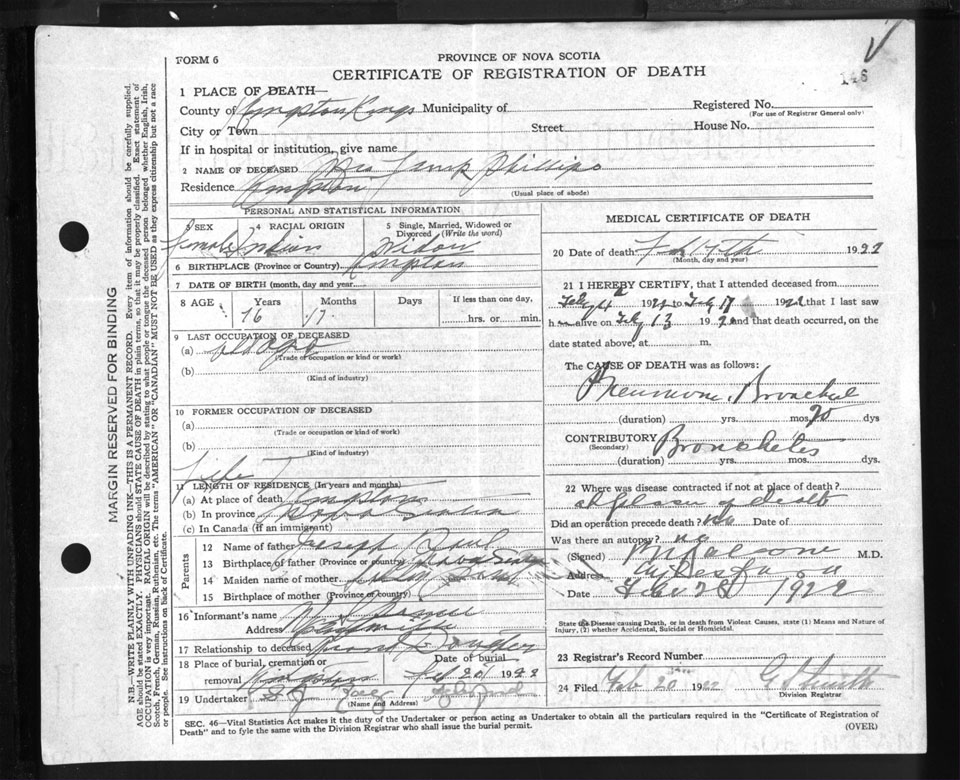 FORM 6
PROVINCE OF NOVA SCOTIA
CERTIFICATE OF REGISTRATION OF DEATH
146
1 PLACE OF DEATH—
County of Kings Municipality of
Registered No.
(For use of Registrar General only)
City or Town Street House No.
If in hospital or institution, give name
2 NAME OF DECEASED Mrs Phillips
Residence
(Usual place of abode)
PERSONAL AND STATISTICAL INFORMATION
3 SEX 4 RACIAL ORIGIN 5 Single, Married, Widowed or Divorced (Write the word)
Female Indian Widow
6 BIRTHPLACE (Province or Country)
7 DATE OF BIRTH (month, day and year)
8 AGE Years Months Days If less than one day,
76 hrs. or min.
9 LAST OCCUPATION OF DECEASED
(a)
(Trade or occupation or kind of work)
(b)
(Kind of industry)
10 FORMER OCCUPATION OF DECEASED
(a)
(Trade or occupation or kind of work)
(b)
(Kind of industry)
Life
11 LENGTH OF RESIDENCE (In years and months)
(a) At place of death
(b) In province Nova Scotia
(c) In Canada (if an immigrant)
Parents
12 Name of father Joseph Paul
13 Birthplace of father (Province or Country) Nova Scotia
14 Maiden name of mother
15 Birthplace of mother (Province or country)
16 Informant's name
Address
17 Relationship to deceased
18 Place of burial, cremation or removal Date of burial
Feb 20 1922
19 Undertaker
(Name and Address)
MEDICAL CERTIFICATE OF DEATH
20 Date of death Feb 17th 1922
(Month, day and year)
21 I HEREBY CERTIFY, that I attended deceased from
1922 to Feby 17 1922 that I last saw
h alive on Feby 13 192 and that death occurred, on
date stated above, at m.
The CAUSE OF DEATH was as follows:
Pneumonia, Bronchial
(duration) yrs. mos. dys
CONTRIBUTORY
(Secondary)
Bronchitis
(duration) yrs. mos. dys.
22 Where was disease contracted if not at place of death?
at place of death
Did an operation precede death? No Date of
Was there an autopsy? no
(Signed) M.D.
Address Aylesford
Date Feb 1922
State the Disease causing Death, or in death from Violent Causes, state (1) Means and Nature of
Injury, (2) whether Accidental, Suicidal or Homicidal.
23 Registrar's Record Number
24 Filed Feb 20 1922
Division Registrar
SEC. 46—Vital Statistics Act makes it the duty of the Undertaker or person acting as Undertaker to obtain all the particulars required in the "Certificate of Registration of
Death" and to fyle the same with the Division Registrar who shall issue the burial permit.
(OVER)
MARGIN RESERVED FOR BINDING
N.B.—WRITE PLAINLY WITH UNFADING INK—THIS IS A PERMANENT RECORD. Every item of information should be carefully supplied.
AGE should be stated EXACTLY. PHYSICIANS should STATE CAUSE OF DEATH in plain terms, so that it may be properly classified. Exact statement of
OCCUPATION is very important. RACIAL ORIGIN will be described by stating to what people or tongue the deceased person belonged whether English, Irish,
Scotch, French, German, Russian, Ruthenian, etc. The terms "AMERICAN" OR "CANADIAN" MUST NOT BE USED as they express citizenship but not a race
or people. See instructions on back of Certificate.